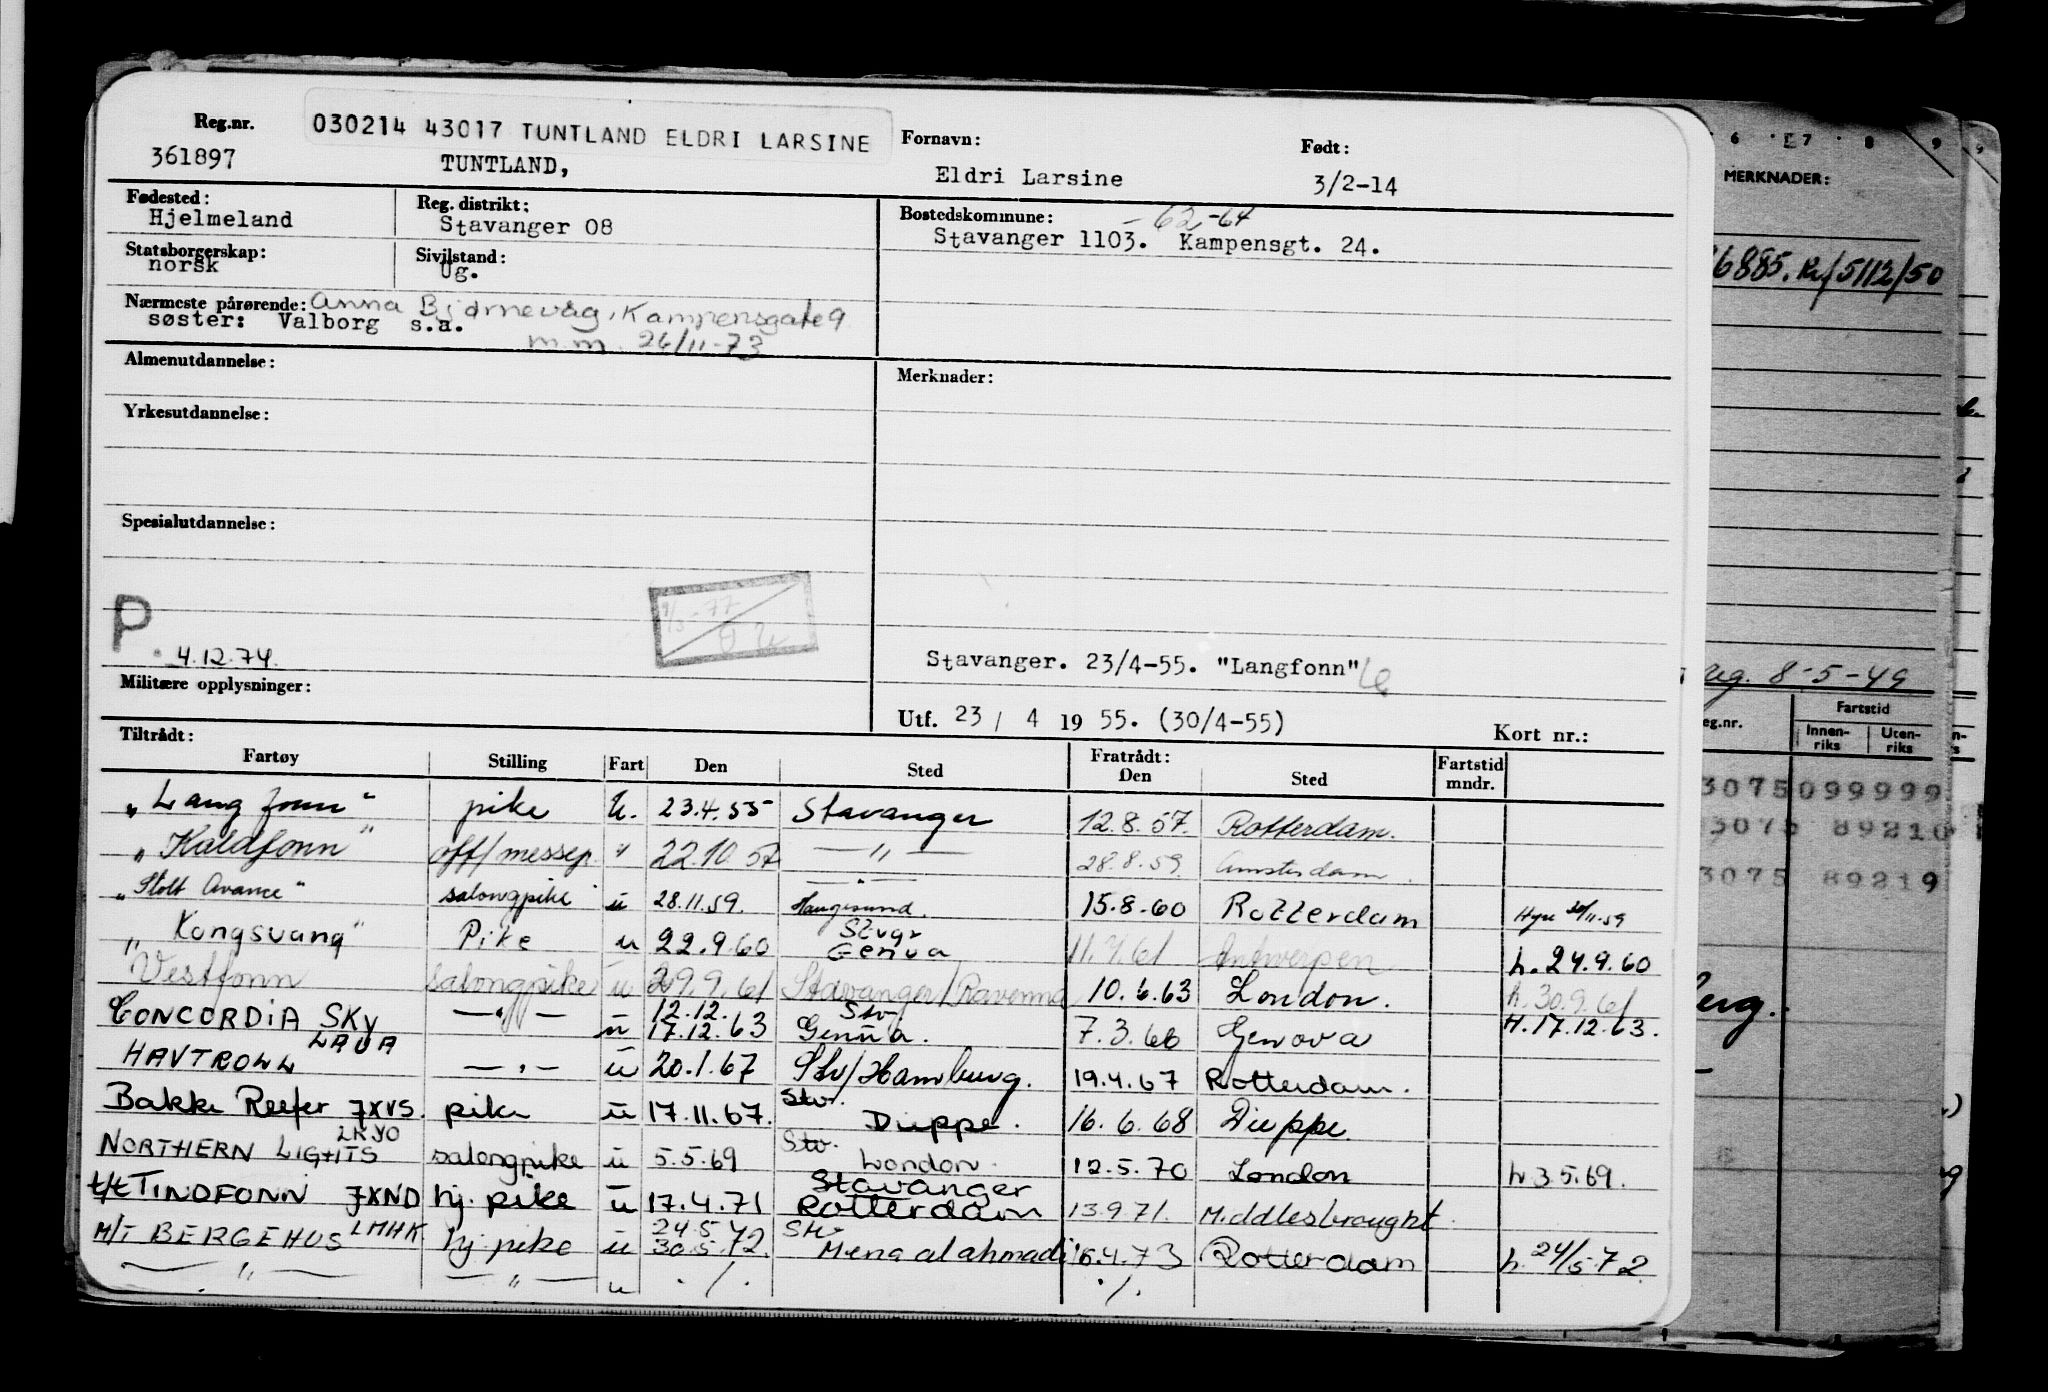 Reg.nr. 030214 43017 TUNTLAND ELDRI LARSINE Fornavn: Født:
361897 TUNTLAND, Eldri Larsine 3/2-14
Fødested: Reg. distrikt: Bostedskommune: - 62 -64
Hjelmeland Stavanger 08 Stavanger 1103. Kampensgt. 24.
Statsborgerskap: Sivilstand:
norsk Ug.
Nærmeste pårørende: Anna Bjørnevåg, Kampensgate 9
søster: Valborg s.a.
m.m. 26/11-73
Almenutdannelse: Merknader:
Yrkesutdannelse:
Spesialutdannelse:
P
4.12.74.
Stavanger. 23/4-55. "Langfonn"
Militære opplysninger:
Utf. 23 / 4 19 55. (30/4-55) Kort nr.:
Tiltrådt: Fratrådt: Fartstid
Fartøy Stilling Fart Den Sted Den Sted mndr.
"Langfonn" pike u. 23.4.55 Stavanger 12.8.57. Rotterdam.
"Kaldfonn" off/messep. " 22.10.57 — " — 28.8.59. Amsterdam.
— " —
"Stolt Avance" salongpike u 28.11.59. Haugesund. 15.8.60 Rotterdam Hyre 30/11-59
Stvgr
"Kongsvang" Pike u 22.9.60 Genua 11.7.61 Antwerpen h. 24.9.60
Vestfonn salongpike u 29.9.61 Stavanger/Ravenna 10.6.63 London. h. 30.9.61
12.12. Stv
CONCORDIA SKY — " — u 17.12.63 Genua. 7.3.66 Genova H. 17.12.63.
LAUA
HAVTROLL — " — u 20.1.67 Stv/Hamburg. 19.4.67 Rotterdam.
Stv.
Bakke Reefer JXVS. pike u 17.11.67. Dieppe. 16.6.68 Dieppe.
LKYO Stv.
NORTHERN LIGHTS salongpike u 5.5.69 London. 12.5.70 London h 3.5.69.
Stavanger
t/t TINDFONN JXND hj. pike u 17.4.71 Rotterdam 13.9.71. Middlesbrought
24.5 Stv
M/T BERGEHUS LMHK hj. pike u 30.5.72. Mena al ahmadi 16.4.73 Rotterdam h. 24/5-72
— " — — " — u ./. ./.
6 7 8 9
MERKNADER:
6885. 5/12/50
8-5-49
eg.nr. Fartstid
Innen-riks Uten-riks
3075 099999
3075 89210
3075 89219